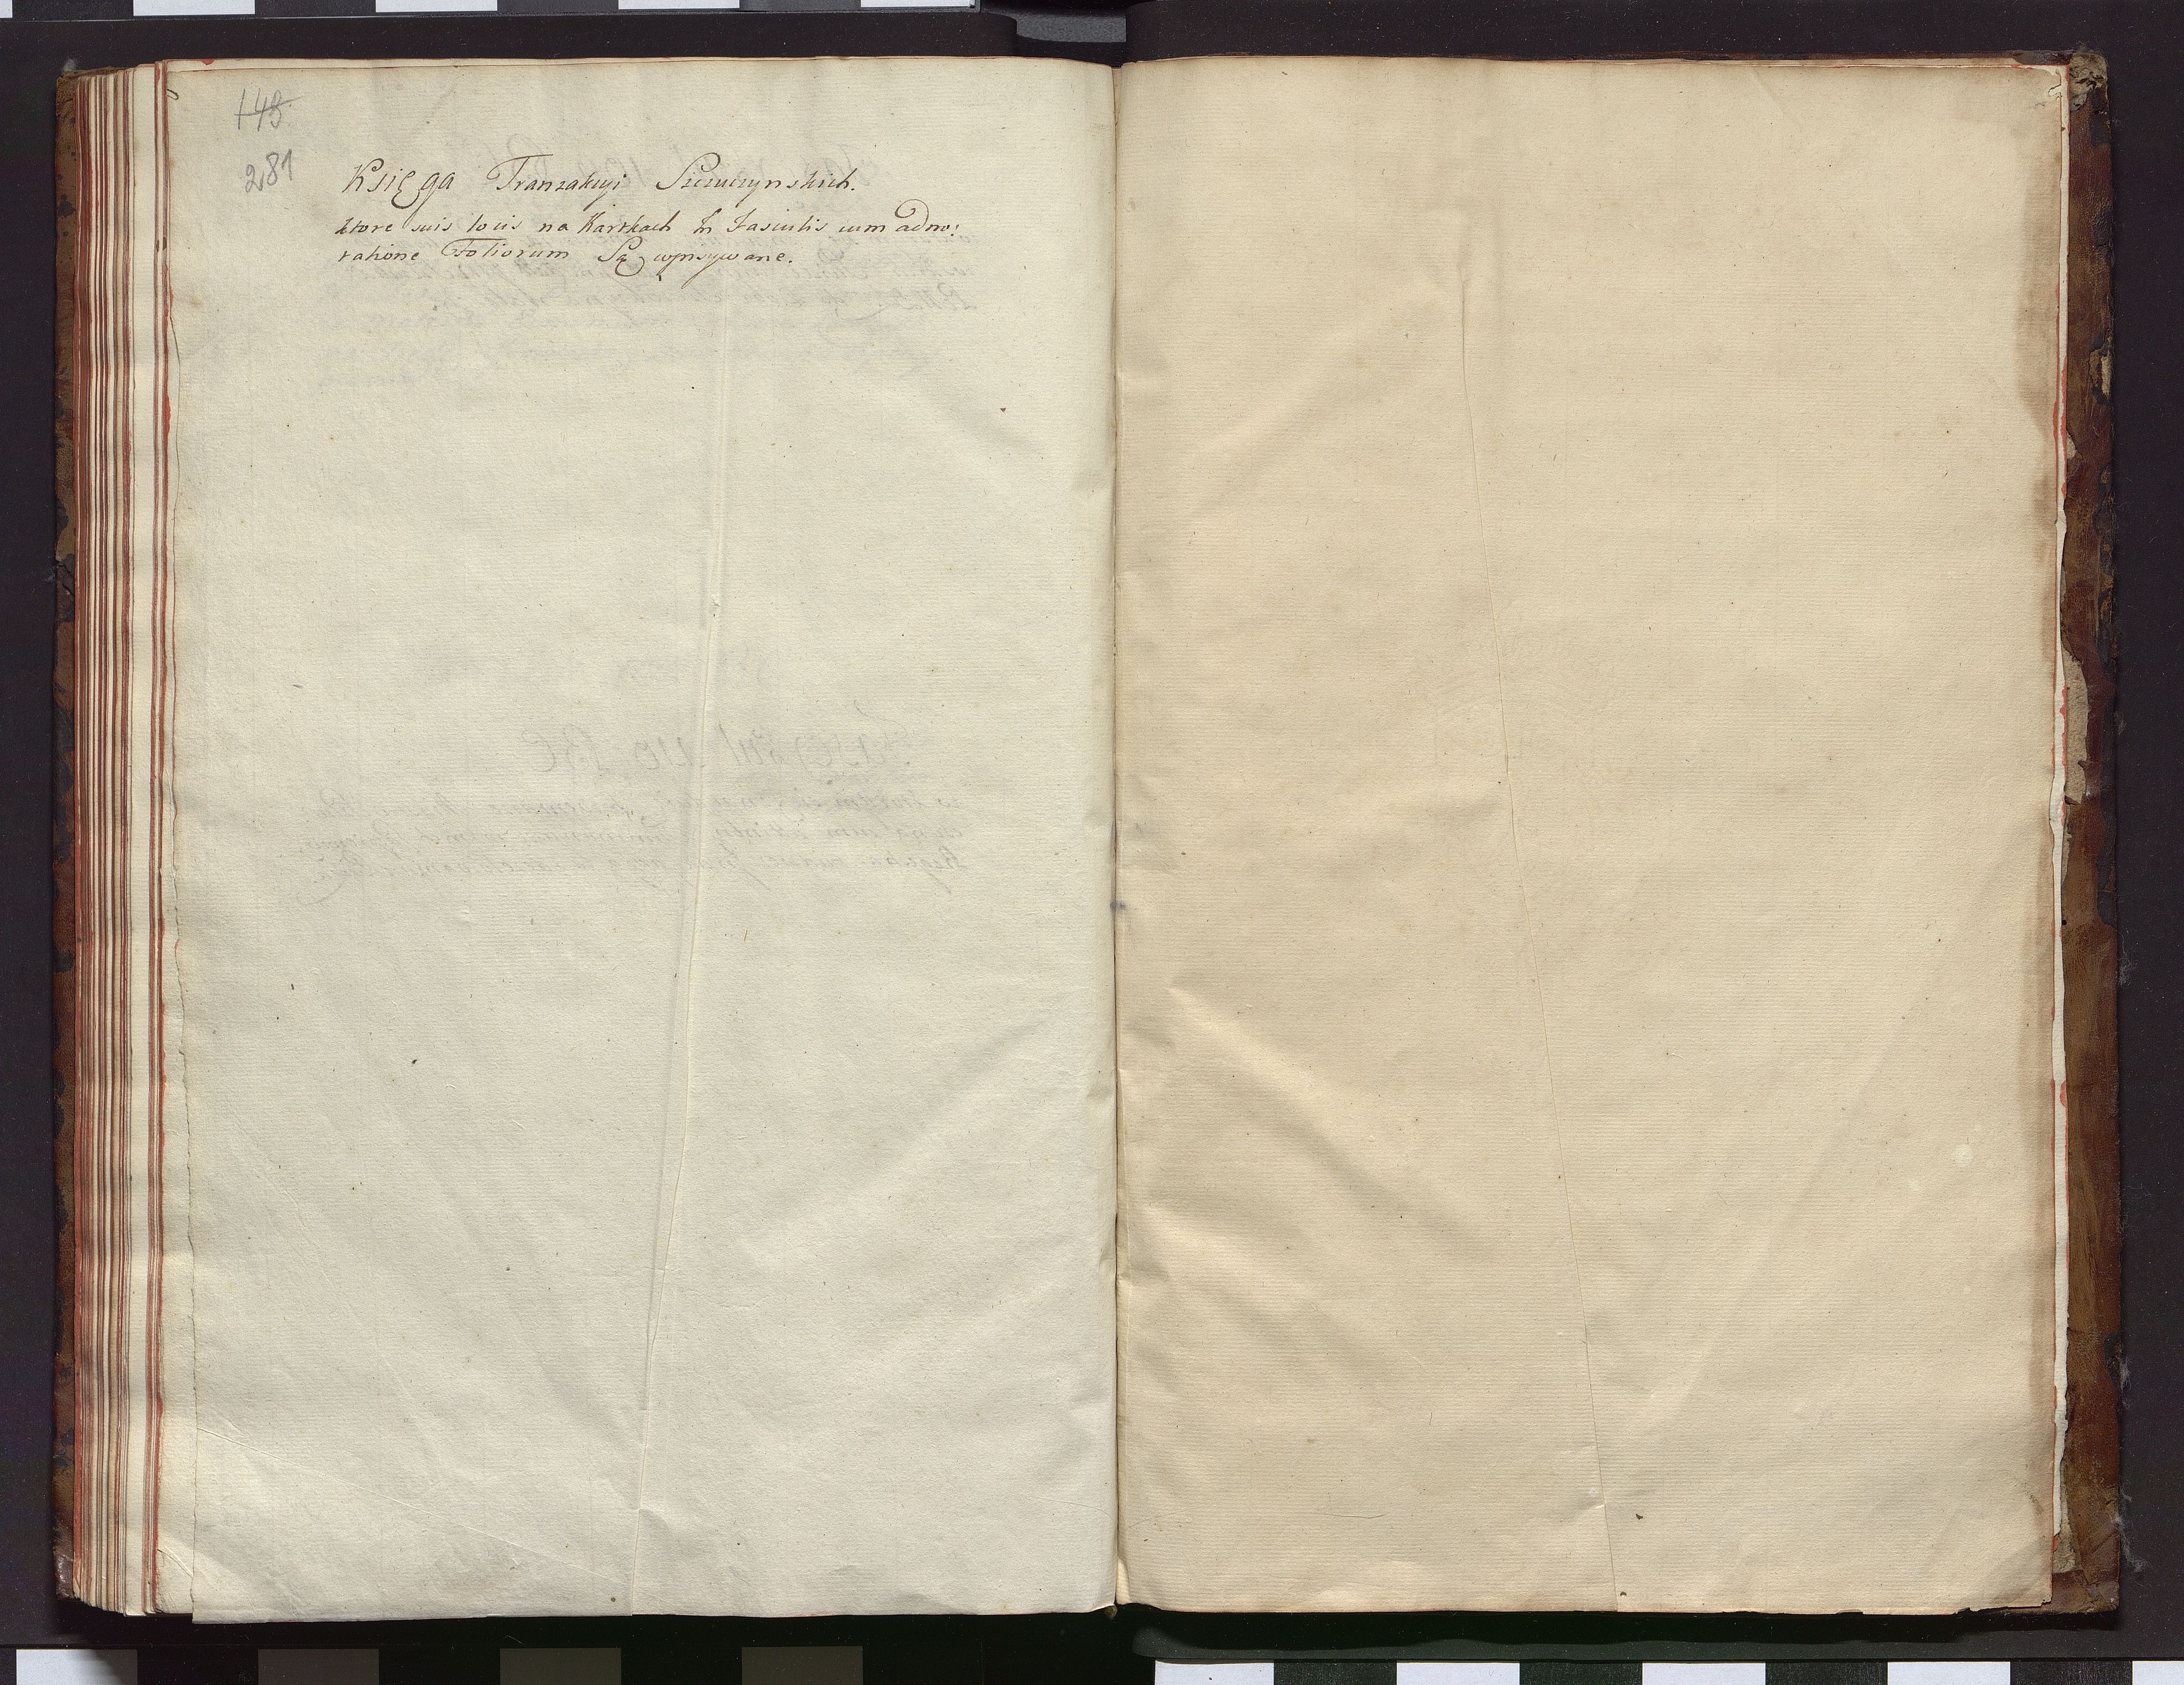 149
281
Księga Tranzakcyi Szczuczynskich.
ktore suis locis na Kartkach In Fasciulis cum adno:
tatione Foliorum Są wpisywane.